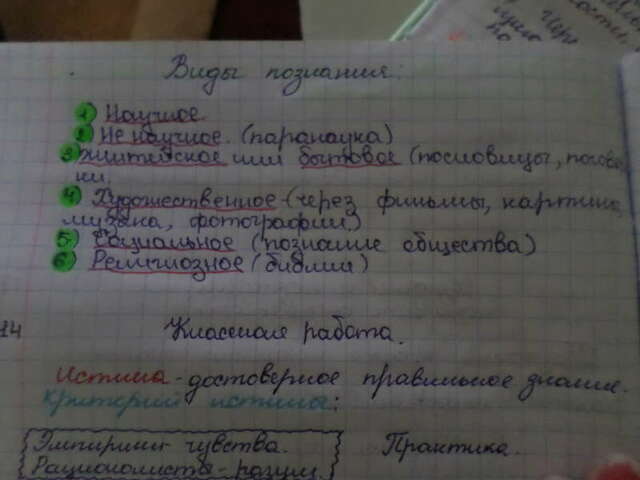 Виды познания:
1) Научное.
2) Не научное. (паранаука)
3 житейское или бытовое (пословицы, погово
ки.
4) Художественное (через фильмы, картины,
музыка, фотографии)
5) Социальное (познание общества)
6) Религиозное (библия)
14 Классная работа.
Истина - достоверное правильное знание.
Критерий истины:
Эмпирики чувства. Практика.
Рационалисты - разум.